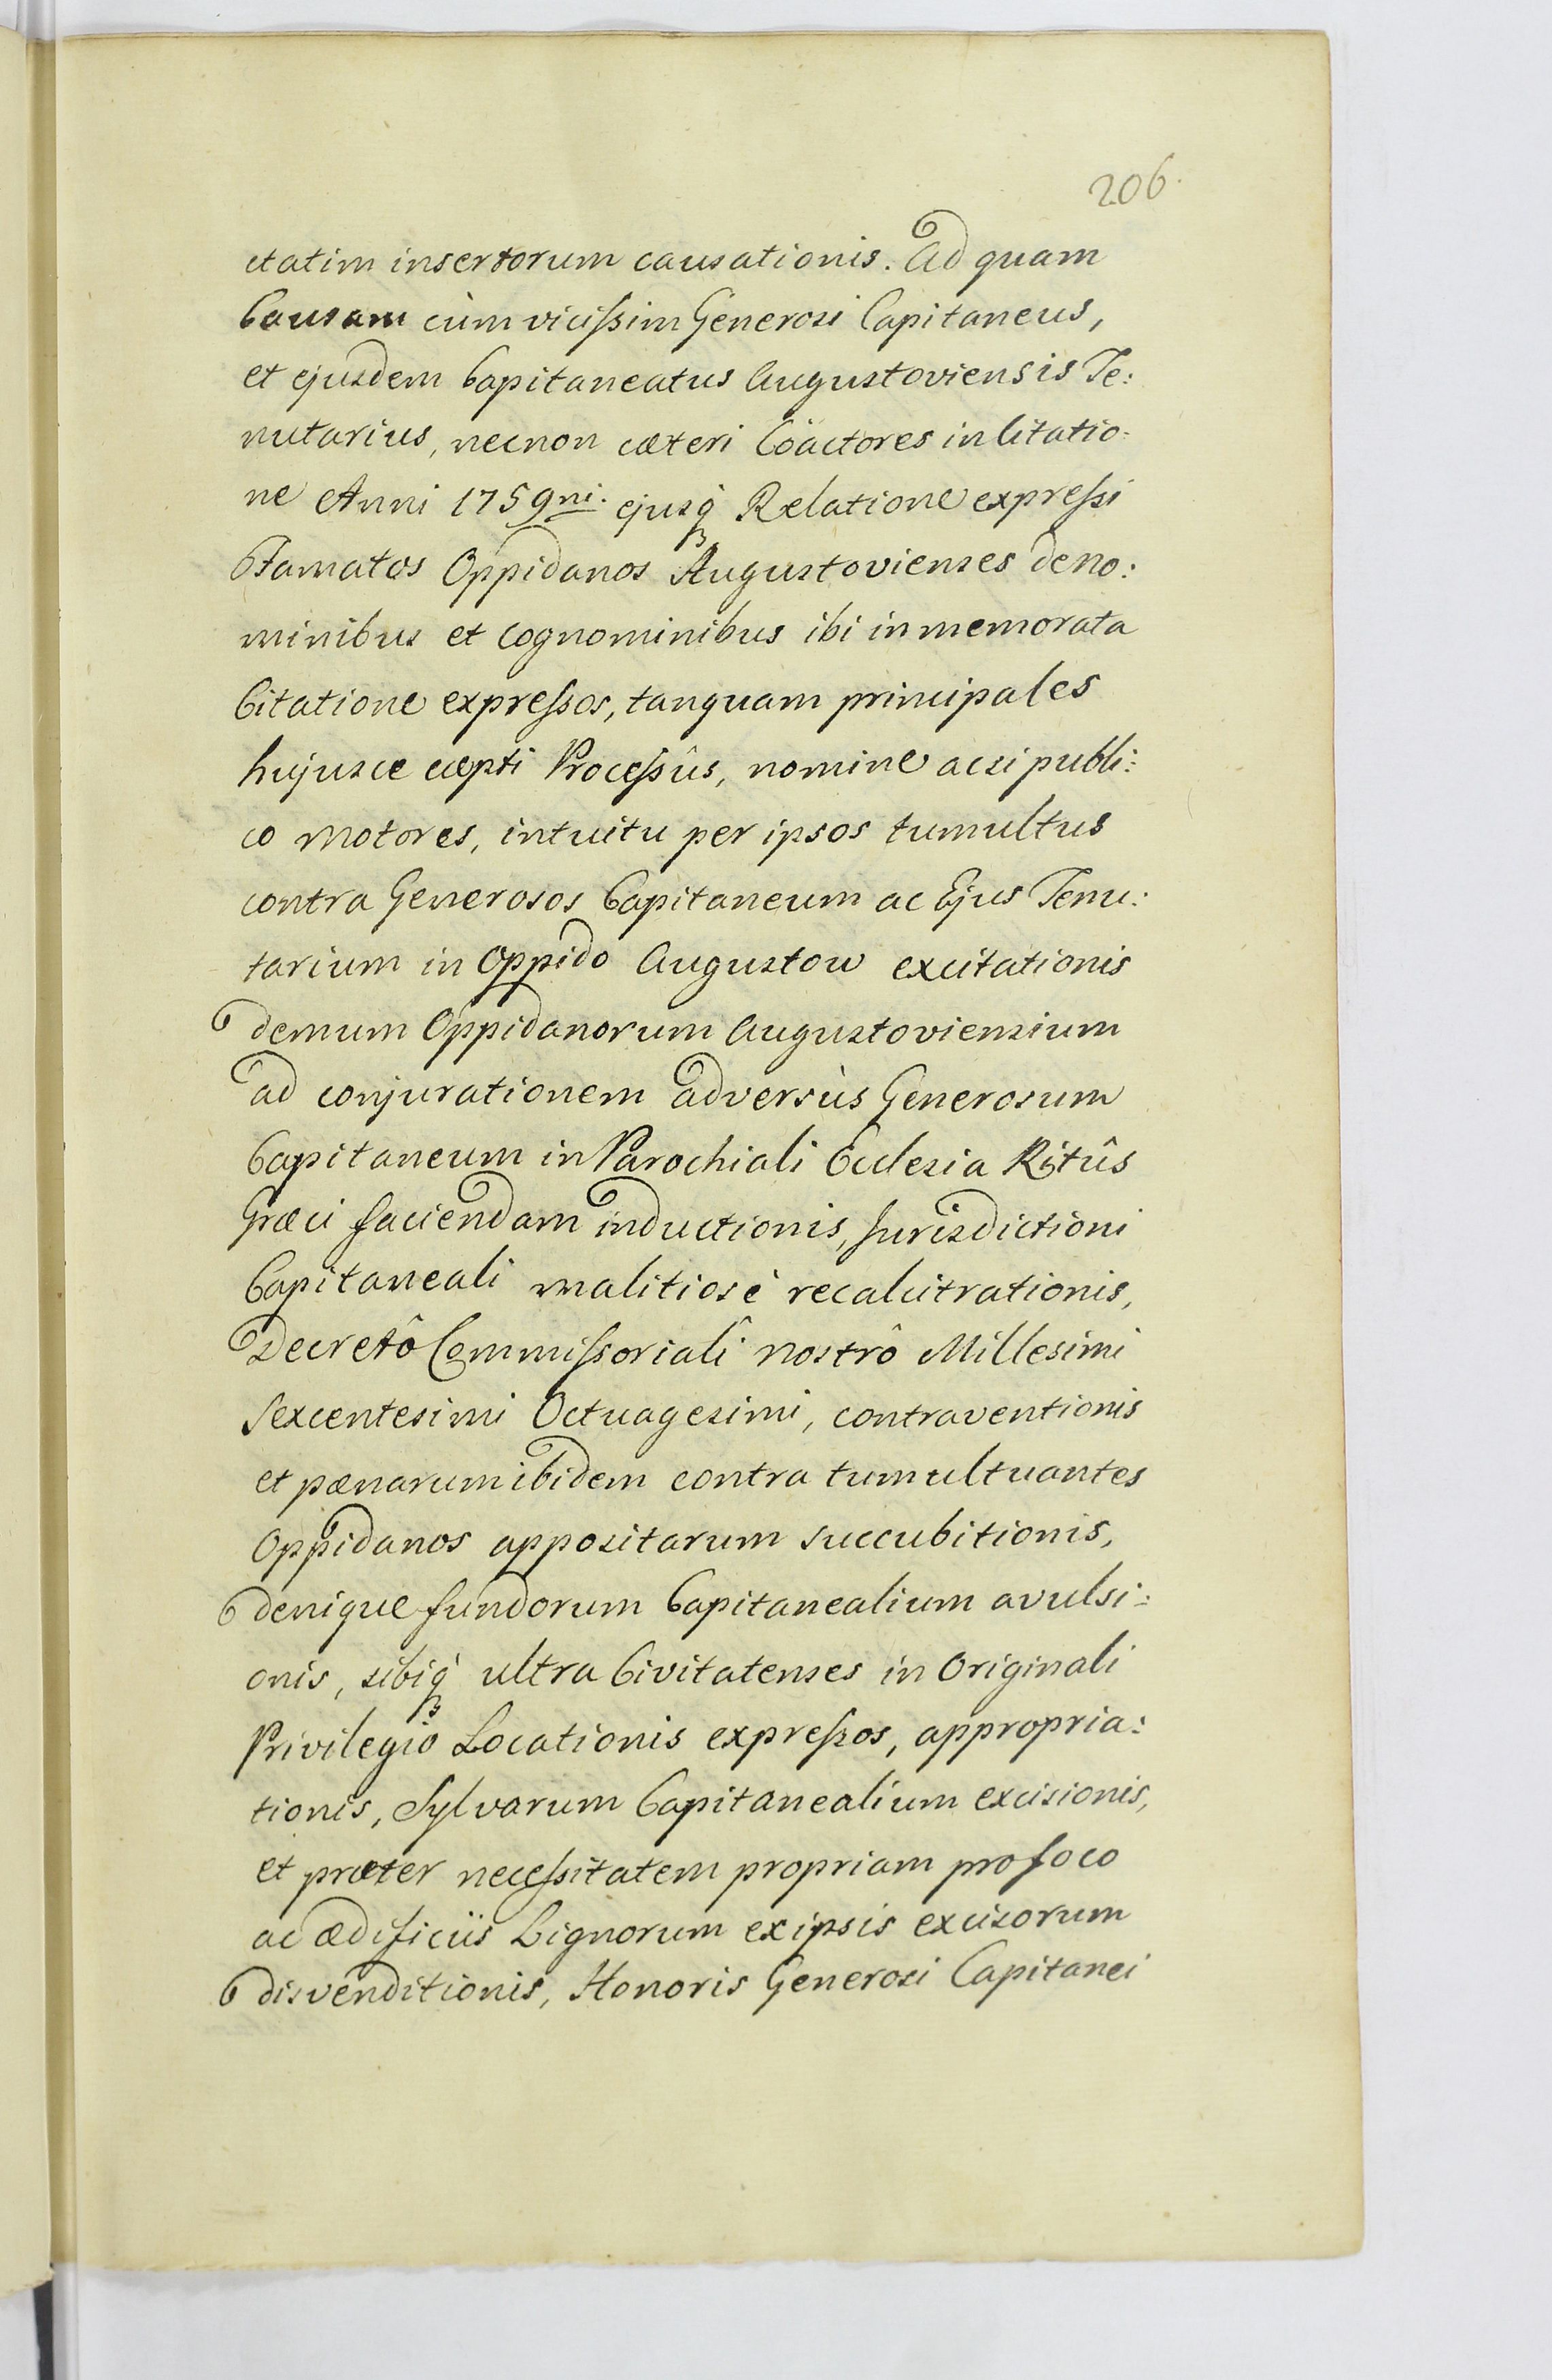 206.
ctatim insertorum causationis. Ad quam
Causam cùm viciſsim Generosi Capitaneus,
et ejusdem Capitaneatus Augustoviensis Te:
nutarius, necnon cæteri Coäctores in Citatio:
ne Anni 1759ni. ejusq̀ Relatione expreſsi
Famatos Oppidanos Augustovienses de no:
minibus et cognominibus ibi in memorata
Citatione expreſsos, tanquam principales
hujusce cæpti Proceſsûs, nomine acsi publi:
co motores, intuitu per ipsos tumultus
contra Generosos Capitaneum ac Ejus Tenu:
tarium in Oppido Augustow excitationis
demum Oppidanorum Augustoviensium
ad conjurationem adversùs Generosum
Capitaneum in Parochiali Ecclesia Ritûs
Græci faciendam inductionis, Jurisdictioni
Capitaneali malitiosè recalcitrationis,
Decretô Commiſsoriali nostrô Millesimi
Sexcentesimi Octuagesimi, contraventionis
et pænarum ibidem contra tumultuantes
Oppidanos appositarum succubitionis,
denique fundorum Capitanealium avulsi:
onis, sibiq̀ ultra Civitatenses in Originali
Privilegio Locationis expreſsos, appropria:
tionis, Sylvarum Capitanealium excisionis,
et præter neceſsitatem propriam pro foco
ac ædificiis Lignorum ex ipsis excisorum
disvenditionis, Honoris Generosi Capitanei